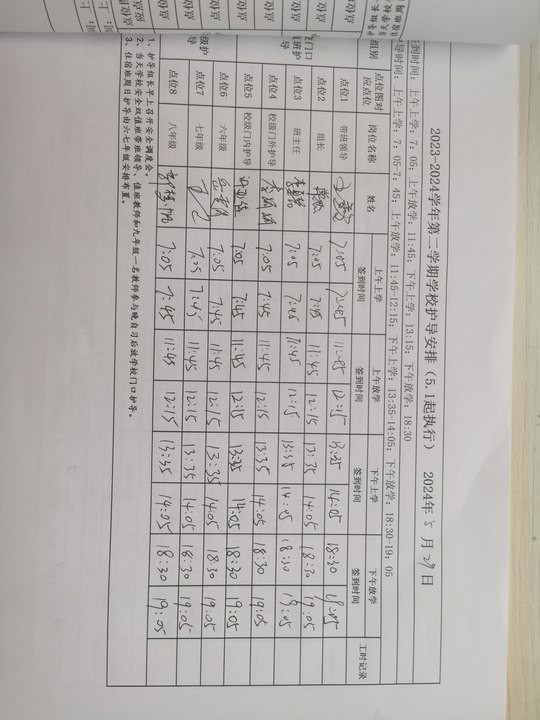 2023-2024学年第二学期学校护导安排（5.1起执行） 2024年 5 月 29 日
到时间：上午上学：7：05，上午放学：11:45；下午上学：13:15；下午放学：18:30
导时间：上午上学：7：05-7：45；上午放学：11:45-12:15；下午上学：13:35-14:05；下午放学：18:30-19：05
组别 点位图对应点位 岗位名称 姓名 上午上学签到时间 上午放学签到时间 下午上学签到时间 下午放学签到时间 工时记录
点位1 带班领导 7:05 7:45 11:45 12:15 13:35 14:05 18:30 19:05
点位2 组长 7:05 7:45 11:45 12:15 13:35 14:05 18:30 19:05
点位3 班主任 7:05 7:45 11:45 12:15 13:35 14:05 18:30 19:05
点位4 校级门外护导 7:05 7:45 11:45 12:15 13:35 14:05 18:30 19:05
点位5 校级门内护导 7:05 7:45 11:45 12:15 13:35 14:05 18:30 19:05
点位6 六年级 7:05 7:45 11:45 12:15 13:35 14:05 18:30 19:05
点位7 七年级 7:05 7:45 11:45 12:15 13:35 14:05 18:30 19:05
点位8 八年级 7:05 7:45 11:45 12:15 13:35 14:05 18:30 19:05
门口
班护
导
级护
导
1、护导组长早上召开安全调度会。
2、当天学校安全双值班带班领导、值班教师和九年级一名教师参与晚自习后放学校门口护导。
3、住宿班周日护导由六七年级安排布置。